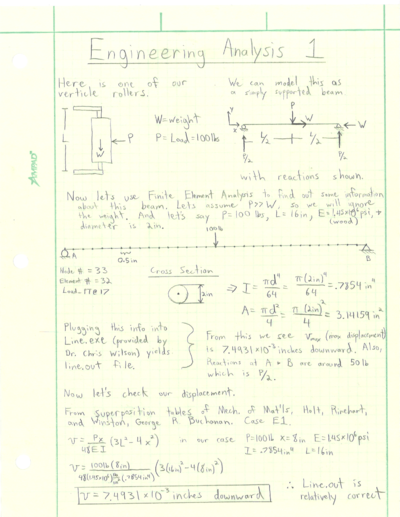 Engineering Analysis 1
Here is one of our
verticle rollers.
We can model this as
a simply supported beam
L
P
W
W=Weight
P = Load = 100 lb
Y
X
P
W
L/2
L/2
P/2
P/2
with reactions shown.
Now let's use Finite Element Analysis to find out some information
about this beam. Lets assume P>>W, so we will ignore
the weight. And let's say P=100 lbs, L=16in, E=1.45×10⁶ psi, +
diameter is 2in. (wood)
100 lb
A
B
0.5in
Node # = 33
Element # = 32
Load @ #17
Cross Section
2in
⇒ I = πd⁴/64 = π(2in)⁴/64 = .7854 in⁴
A = πd²/4 = π(2in)²/4 = 3.14159 in²
Plugging this info into
Line.exe (provided by
Dr. Chris Wilson) yields
line.out file.
From this we see Vmax (max displacement)
is 7.4931×10⁻³ inches downward. Also,
Reactions at A + B are around 50 lb
which is P/2.
Now let's check our displacement.
From superposition tables of Mech. of Mat'ls, Holt, Rinehart,
and Winston, George R. Buchanan. Case E1.
v = Px/48EI (3L²-4x²) in our case P=100lb x=8in E=1.45×10⁶psi
I=.7854in⁴ L=16in
v = 100lb(8in)/48(1.45×10⁶)lb/in²(.7854in⁴) (3(16in)²-4(8in)²)
v = 7.4931×10⁻³ inches downward
∴ Line.out is
relatively correct